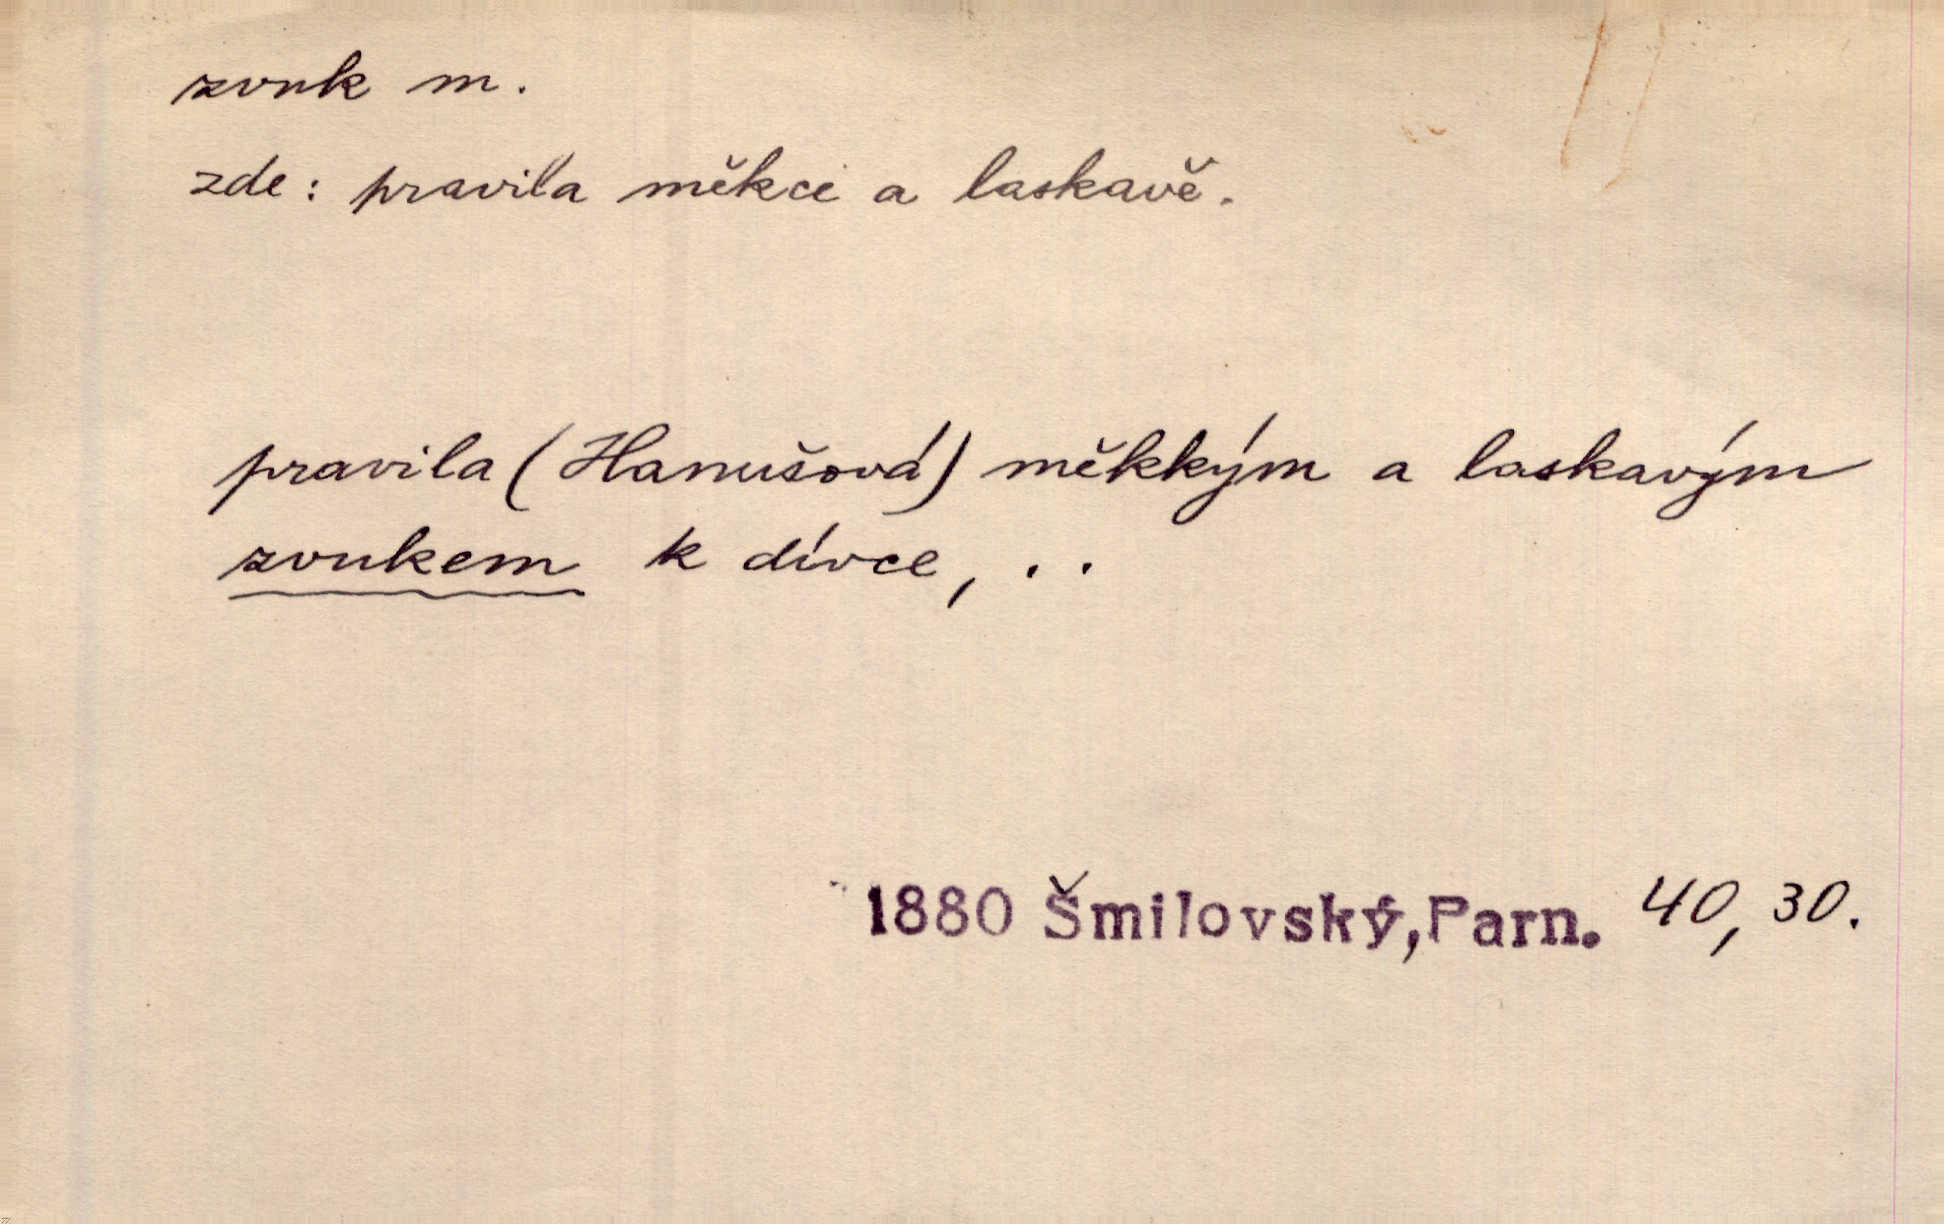 zvuk m.
zde: pravila měkce a laskavě.
pravila (Hanušová) měkkým a laskavým
zvukem k dívce, . .
1880 Šmilovský, Parn. 40, 30.